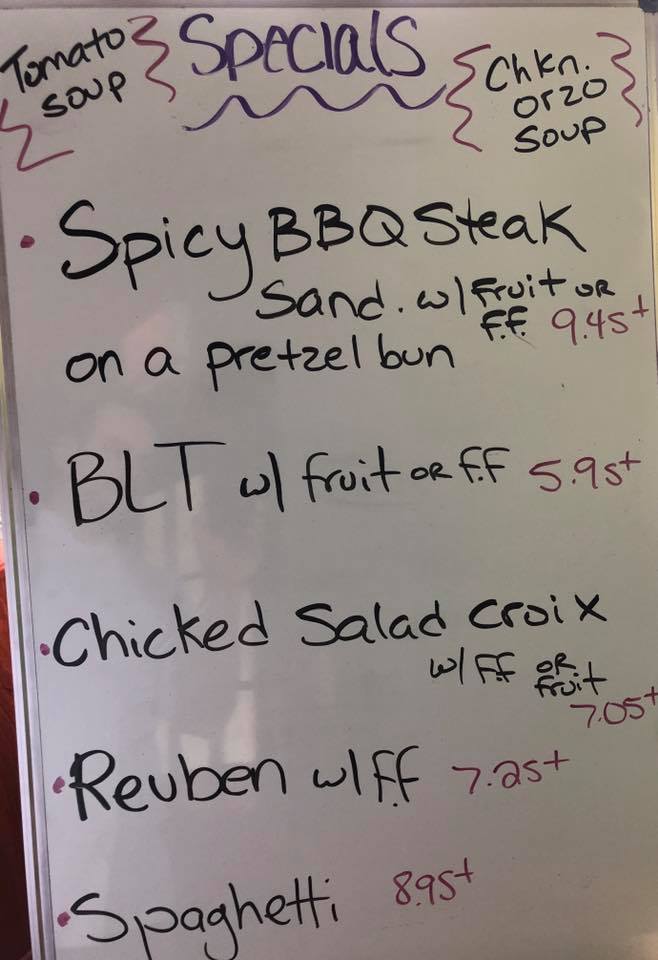 Tomato
soup
Specials
Chkn.
orzo
soup
• Spicy BBQ Steak
Sand. w/ fruit or
f.f. 9.45+
on a pretzel bun
• BLT w/ fruit or f.f 5.95+
• Chicked Salad Croix
w/ f.f or
fruit
7.05+
• Reuben w/ f.f 7.25+
• Spaghetti 8.95+